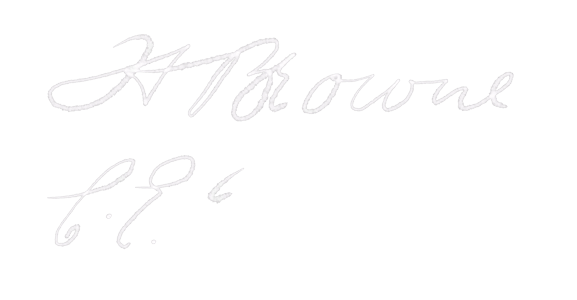 H Browne
C.E.